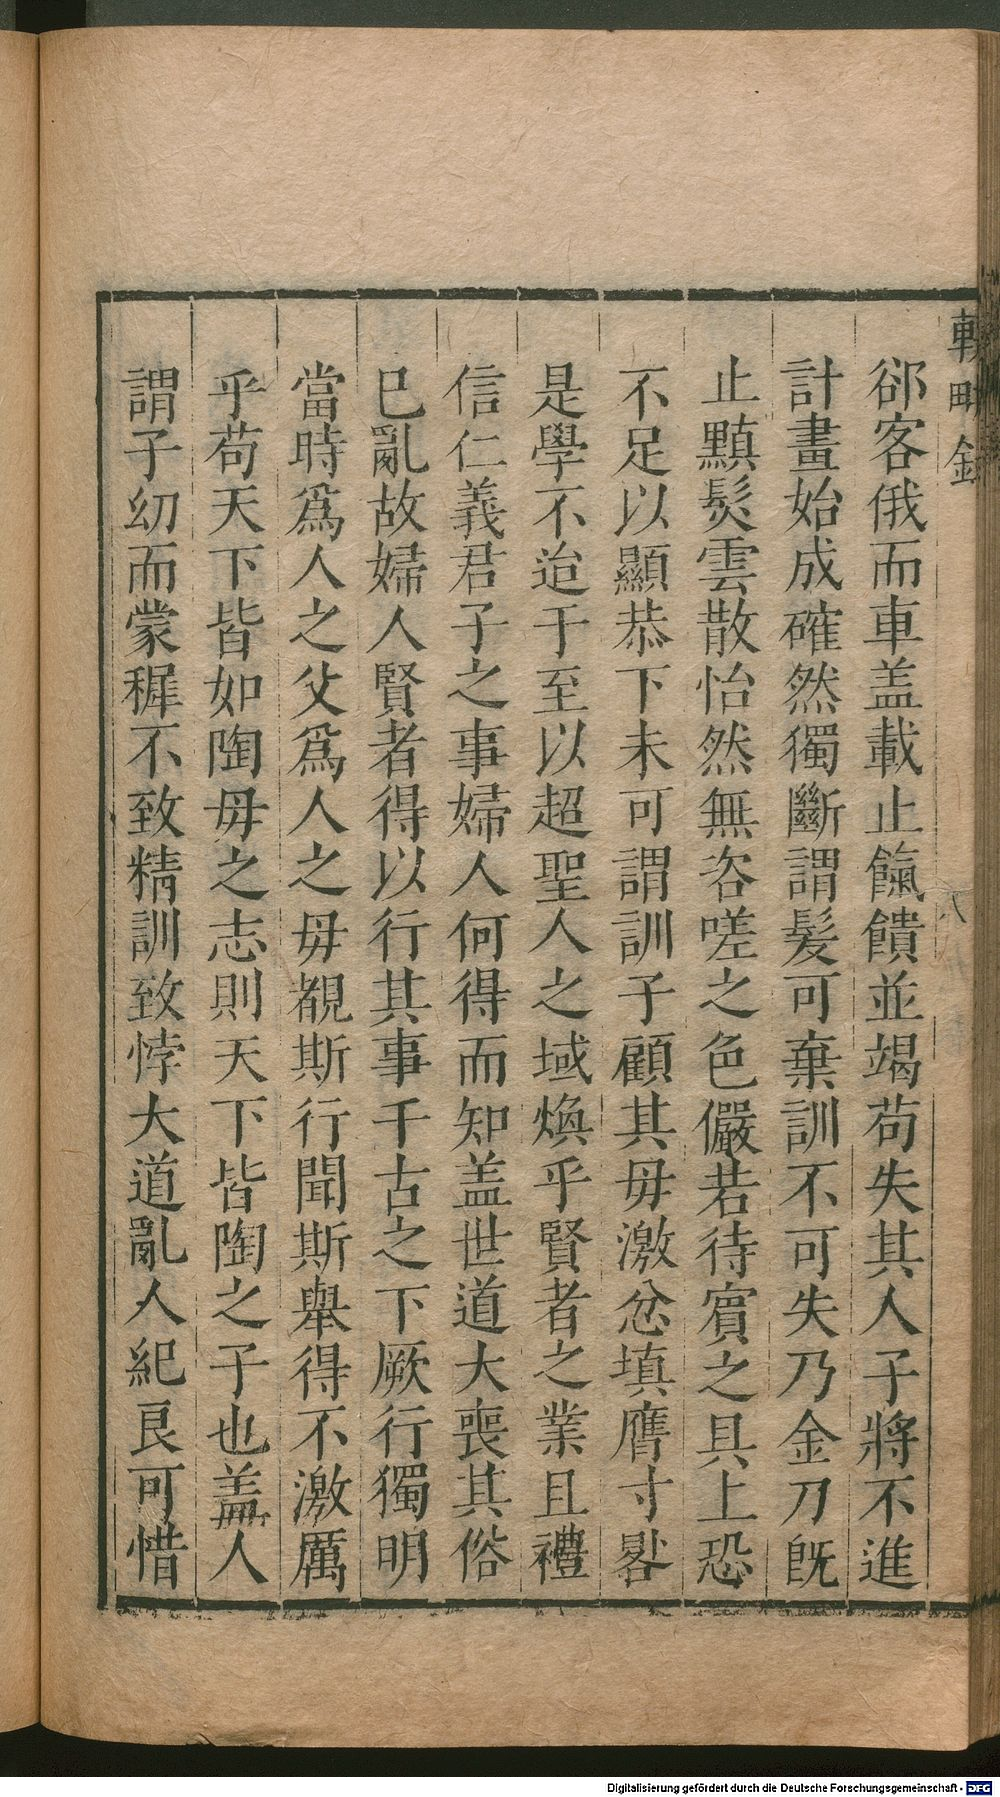 郤客俄而車盖載止餼饋並竭苟失其人子將不進
計畫始成確然獨斷謂髮可棄訓不可失乃金刀旣
止黰髮雲散怡然無咨嗟之色儼若待賓之具上恐
不足以顯恭下未可謂訓子顧其毋激忿填膺寸晷
是學不迨于至以超聖人之域煥乎賢者之業且禮
信仁義君子之事婦人何得而知盖世道大喪其俗
已亂故婦人賢者得以行其事千古之下厥行獨明
當時爲人之父爲人之毋覩斯行聞斯舉得不激厲
乎苟天下皆如陶毋之志則天下皆陶之子也盖人
謂子幼而蒙穉不致精訓致悖大道亂人紀良可惜
八
Digitalisierung gefördert durch die Deutsche Forschungsgemeinschaft - DFG